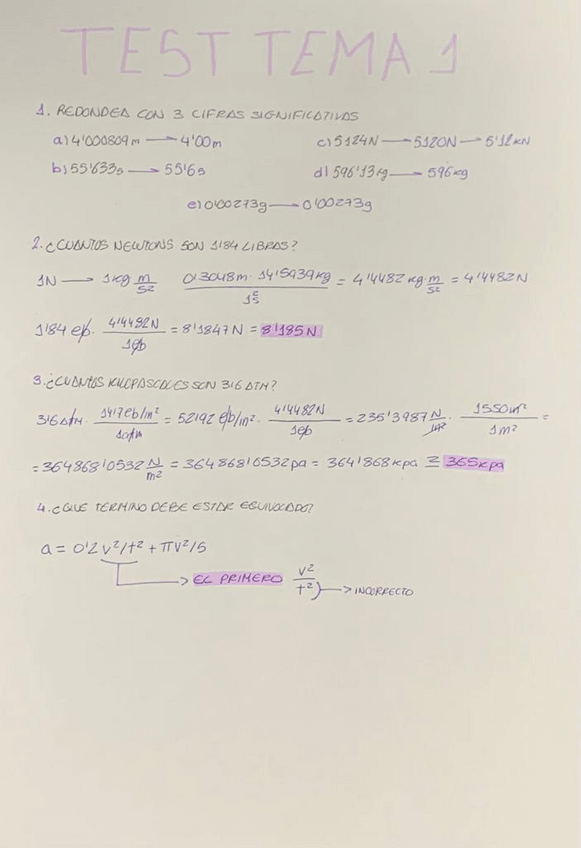 TEST TEMA 1
1. REDONDEA CON 3 CIFRAS SIGNIFICATIVAS
a) 4'000809m → 4'00m
c) 5124N → 5120N → 5'12kN
b) 55'633s → 55'6s
d) 596'13kg → 596kg
e) 0'00273g → 0'00273g
2. ¿CUANTOS NEWTONS SON 1'84 LIBRAS?
1N → 1kg m/s² 0'3048m · 14'5939kg / 1s² = 4'4482 kg · m/s² = 4'4482N
1'84 lb · 4'4482N / 1lb = 8'1847N = 8'185N
3. ¿CUANTOS KILOPASCALES SON 3'6 ATM?
3'6 Atm · 14'7 lb/in² / 1atm = 52'92 lb/in² · 4'4482N / 1lb = 235'3987 N/in² · 1550in² / 1m² =
= 364868'0532 N/m² = 364868'0532pa = 364'868kpa ≅ 365kpa
4. ¿QUE TERMINO DEBE ESTAR EQUIVOCADO?
a = 0'2 v²/t² + πv²/5
→ EL PRIMERO v²/t² → INCORRECTO